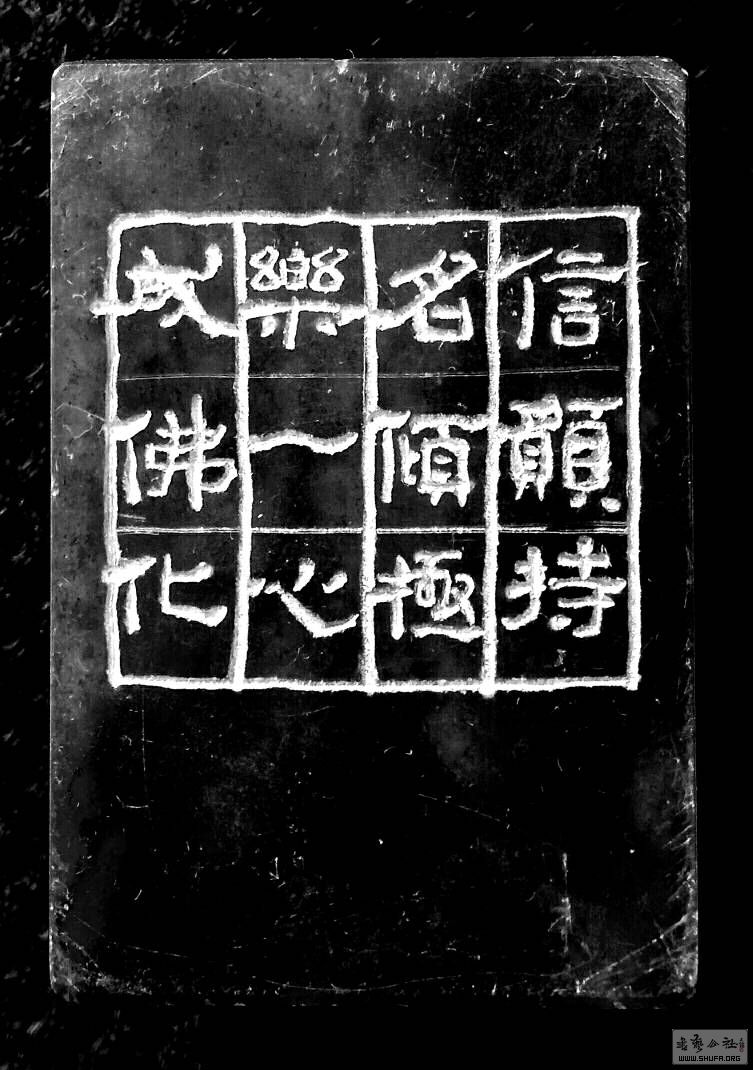 信願持
名傾極
樂一心
成佛化
書艺公社
WWW.SHUFA.ORG